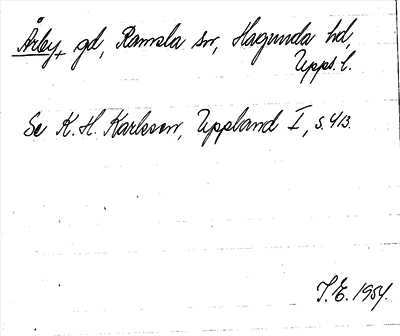 Årby, gd, Ramsta sn, Hagunda hd,
Upps. l.
Se K. H. Karlsson, Uppland I, s. 413.
T. E. 1954.